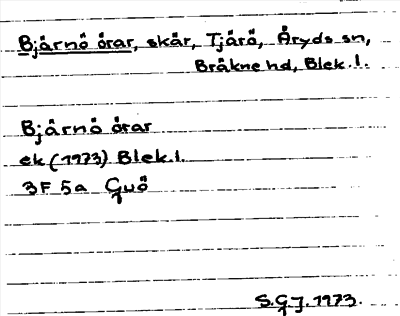 Bjärnö örar, skär, Tjärö, Åryds sn,
Bräkne hd, Blek. l.
Bjärnö örar
ek (1973) Blek. l.
3F 5a Guö
S.G.J. 1973.